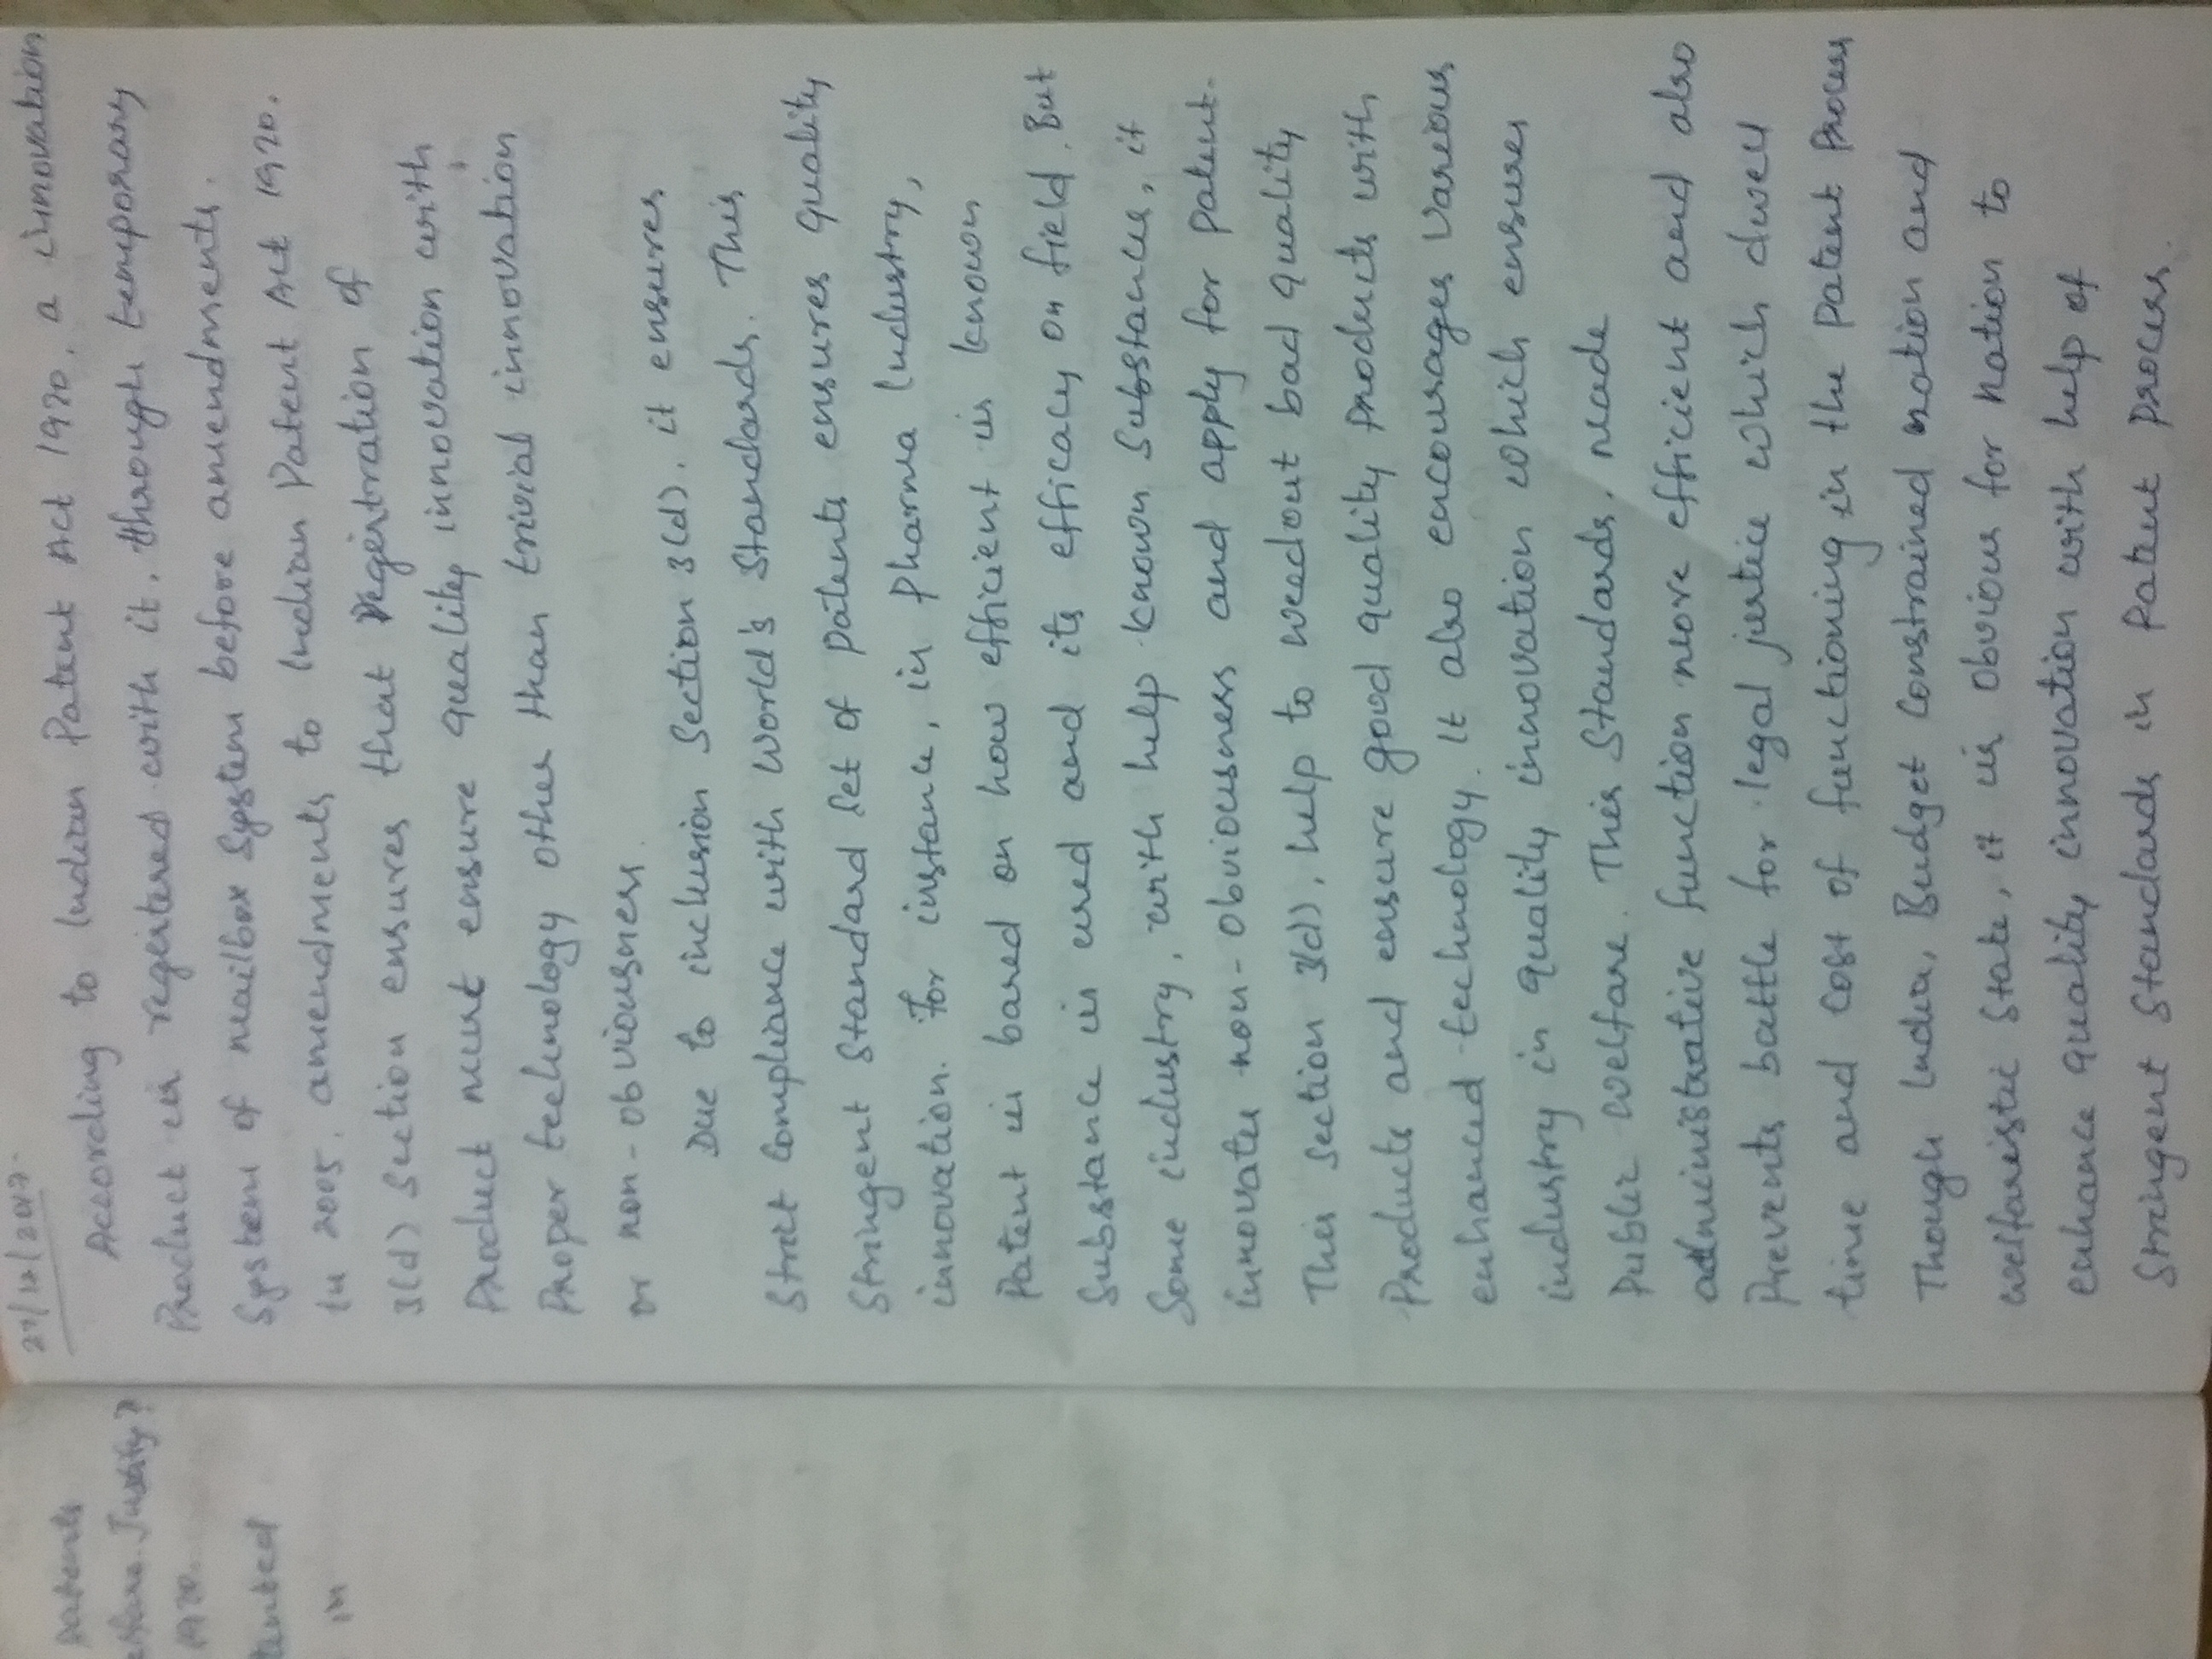 27/12/2017.
According to Indian Patent Act 1970, a innovation
Product is registered with it, through temporary
System of mailbox System before amendments.
In 2005, amendments to Indian Patent Act 1970.
3(d) Section ensures that Registration of
Product must ensure quality innovation with
Proper technology other than trivial innovation
or non-obviousness.
Due to inclusion Section 3(d), it ensures
Strict Compliance with World's Standards. This
Stringent Standard Set of Patents ensures quality
innovation. For instance, in Pharma Industry,
Patent is based on how efficient is known
Substance is used and its efficacy on field. But
Some industry, with help known Substances, it
innovates non-obviousness and apply for Patent.
This section 3(d), help to weedout bad quality
Products and ensure good quality Products with
enhanced technology. It also encourages Various
industry in quality innovation which ensures
Public Welfare. This Standards, made
administrative function more efficient and also
Prevents battle for legal justice which dwell
time and Cost of functioning in the Patent Process
Though India, Budget Constrained nation and
welfaristic State, it is obvious for nation to
enhance quality innovation with help of
Stringent Standards in Patent Process.
Patents
Justify?
1970.
in